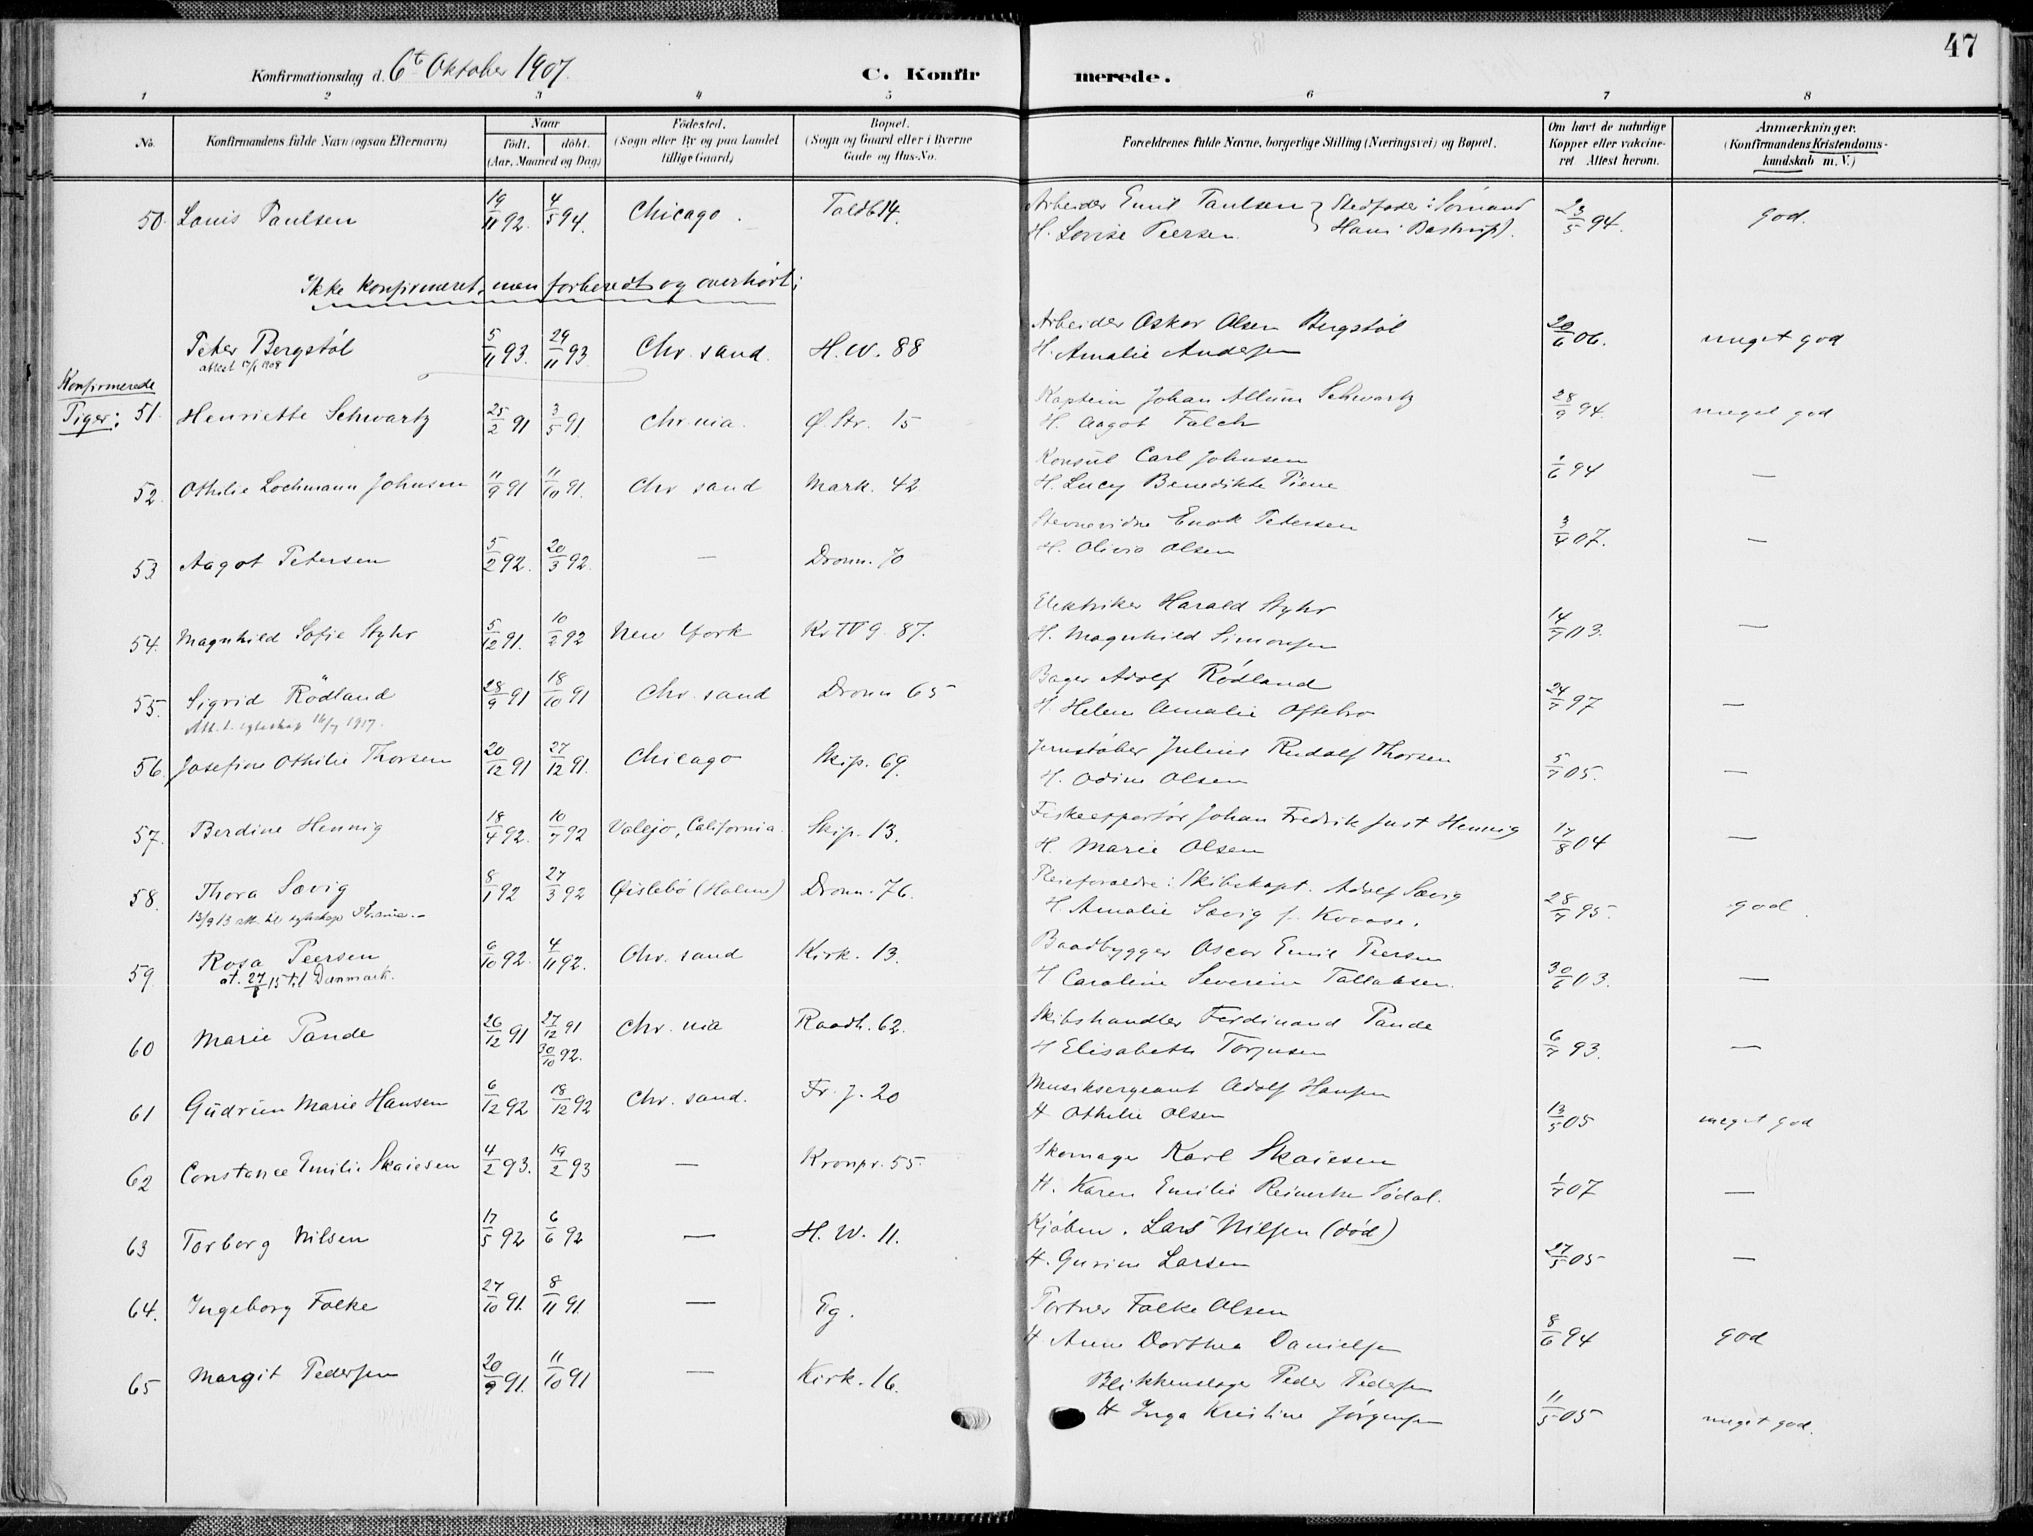 47
Konfirmationsdag d. 6te Oktober 1907. C. Konfirmerede.
1 2 3 4 5 6 7 8
No. Konfirmandens fulde Navn (ogsaa Efternavn) Naar født. døbt. (Aar, Maaned og Dag) Fødested. (Sogn eller By og paa Landet tillige Gaard) Bopæl. (Sogn og Gaard eller i Byerne Gade og Hus-No. Forældrenes fulde Navne, borgerlige Stilling (Næringsvei) og Bopæl. Om havt de naturlige Kopper eller vakcineret Attest herom. Anmærkninger. (Konfirmandens Kristendomskundskab m. V.)
50. Louis Paulsen 19/11 92. 4/5 94. Chicago. Toldb 14. Arbeider Emil Paulsen } Stedfader: Sømand 23/5 94. god.
H. Lovise Peersen. Hans Bastrup).
Ikke konfirmeret, men forberedt og overhørt:
Peter Bergstøl 5/11 93. 29/11 93. Chr. sand. H.W. 88 Arbeider Oskar Olsen Bergstøl 20/6 06. meget god
attest 1908 H. Amalie Andersen
Konfirmerede
Piger: 51. Henriette Schwartz 25/2 91 3/5 91. Chr.nia. Ø. Str. 15 Kaptein Johan Allum Schwartz 28/9 94. meget god
H. Aagot Falch
52. Othilie Lochmann Johnsen 11/9 91 11/10 91. Chr sand Mark. 42 Konsul Carl Johnsen 1/6 94 —
H. Lucy Benedikte Piene
53. Aagot Petersen 5/2 92. 20/3 92. — Dronn. 70 Stevnevidne Enok Petersen 3/4 07. —
H. Olivia Olsen
54. Magnhild Sofie Styhr 5/12 91. 10/2 92 New York Kr IV g. 87. Elektriker Harald Styhr 14/7 03. —
H. Magnhild Simonsen
55. Sigrid Rødland 28/9 91 18/10 91 Chr. sand Dronn 65 Bager Adolf Rødland 24/7 97 —
Att. t. egteskap 16/7 1917. H. Helene Amalie Oftebro
56. Josefine Othilie Thorsen 20/12 91 27/12 91. Chicago Skip. 69. Jernstøber Julius Rudolf Thorsen 5/7 05. —
H. Odine Olsen
57. Berdine Hennig 18/4 92. 10/7 92 Valejo, California. Skip. 13. Fiskeexportør Johan Fredrik Just Hennig 17/8 04 —
H. Marie Olsen
58. Thora Sævig 8/1 92 27/3 92 Øislebø (Holme) Dronn. 76. Pleieforældre: Skibskapt. Adolf Sævig 28/7 95. god.
13/9 13 att. til egteskap H. Amalie Sævig f. Kvaase.
59. Rosa Peersen 6/10 92. 4/11 92. Chr. sand Kirk. 13. Baadbygger Oscar Emil Peersen 30/6 03. —
at. 27/8 15 til Danmark. H Caroline Severine Tallaksen.
60 Marie Pande 26/12 91 27/12 91 Chr. nia Raadh. 62. Skibshandler Ferdinand Pande 6/7 93. —
30/10 92. H Elisabeth Torjusen
61 Gudrun Marie Hansen 6/12 92 18/12 92 Chr. sand. Fr. J. 20 Musiksergeant Adolf Hansen 13/5 05 meget god
H Othilie Olsen
62 Constance Emilie Skaiesen 4/2 93. 19/2 93 — Kronpr. 55. Skomager Karl Skaiesen 1/7 07 —
H. Karen Emilie Reinerthe Sødal.
63 Torborg Nilsen 17/5 92 6/6 92 — H. W. 11. Kjøbm. Lars Nilsen (død) 27/5 05 —
H. Gurine Larsen
64. Ingeborg Falke 27/10 91. 8/11 91 — Eg. Portner Falke Olsen 8/6 94 god
H Anne Dorthea Danielsen
65 Margit Pedersen 20/9 91. 11/10 91 — Kirk. 16. Blikkenslager Peder Pedersen 11/5 05 meget god.
H Inga Kristine Jørgensen